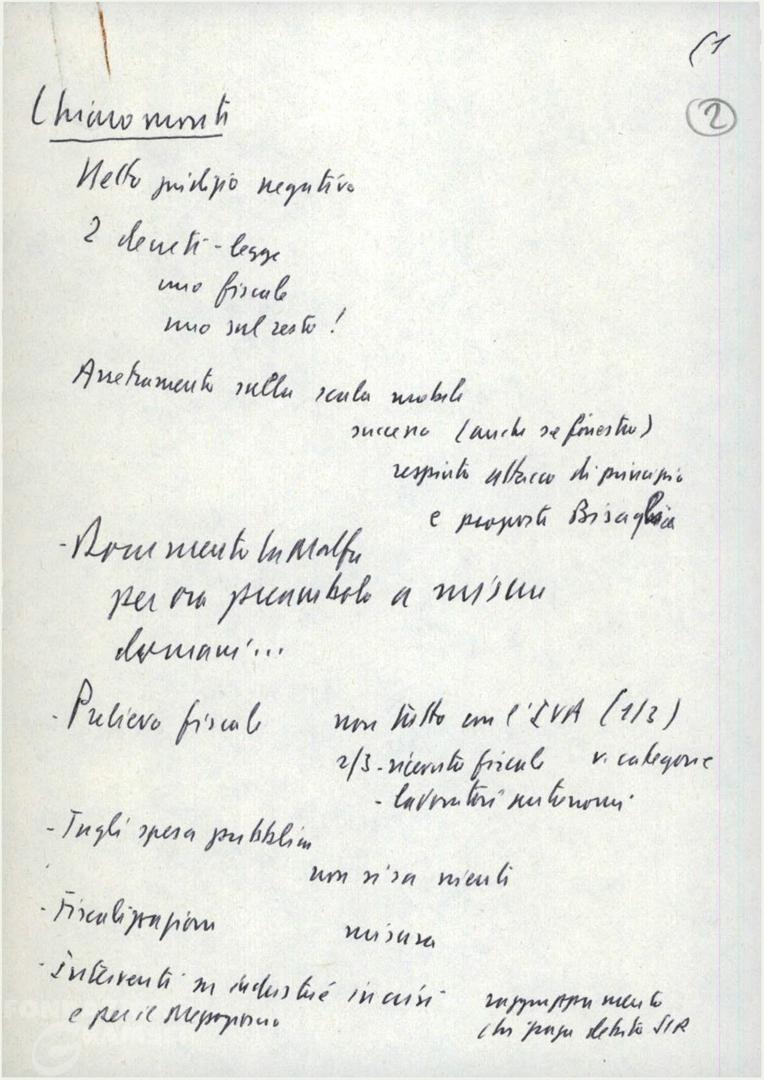 (1
2
Chiaromonte
Netto giudizio negativo
2 decreti-legge
uno fiscale
uno sul resto!
Arretramento sulla scala mobile
successo (anche se finestra)
respinto attacco di principio
e proposte Bisaglia
- Documento La Malfa
per ora preambolo a misure
domani...
- Prelievo fiscale non tutto con l'IVA (1/3)
2/3 - ricevuta fiscale v. categorie
- lavoratori autonomi
- Tagli spesa pubblica
non si sa niente
- Fiscalizzazione misura
- Interventi su industrie in crisi raggruppamento
e per il Mezzogiorno che paga debito SIR